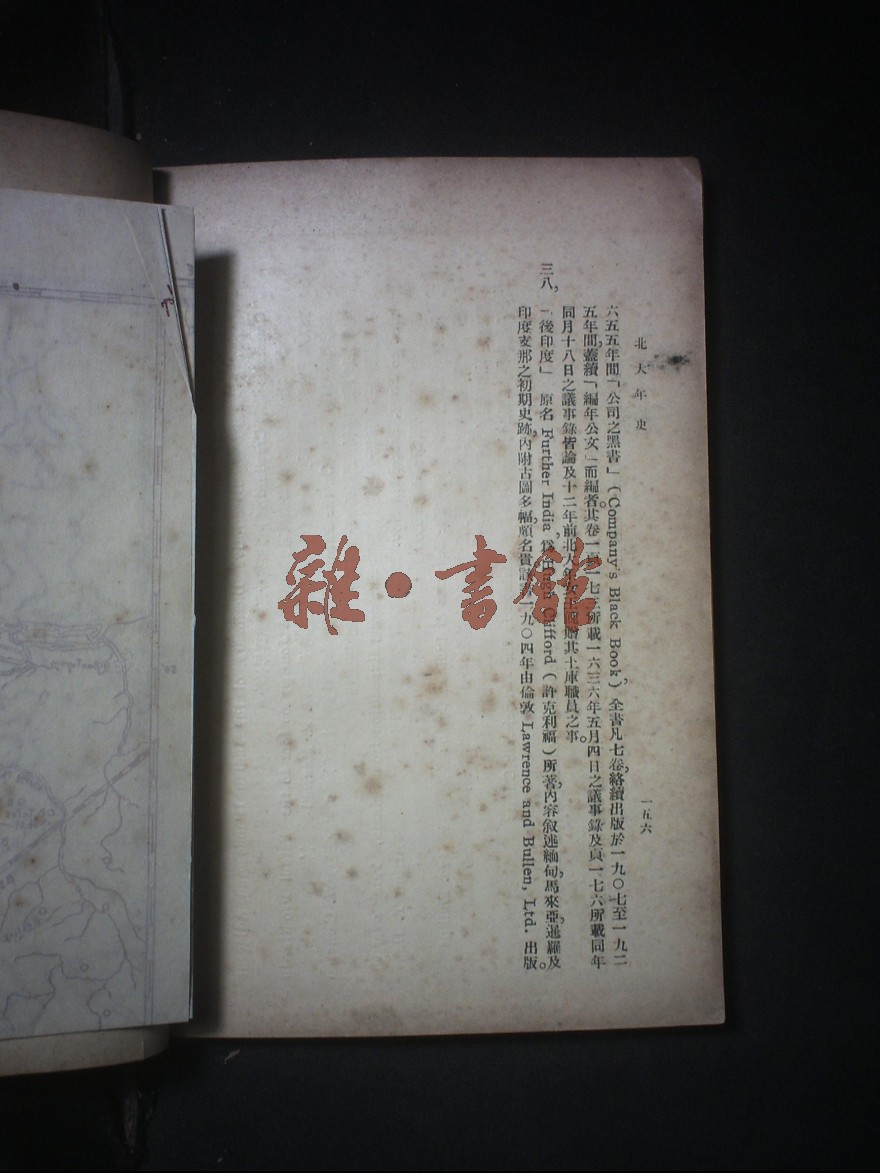 北大年史
一五六
六五五年間「公司之黑書」(Company's Black Book)，全書凡七卷，絡續出版於一九〇七至一九二
五年間，蓋續「編年公文」而編者。其卷一頁一七三所載一六三六年五月四日之議事錄及頁一七六所載同年
同月十八日之議事錄，皆論及十二年前北大年女王贈其土庫職員之事。
三八，「後印度」原名 Further India，爲 Clifford（許克利福）所著，內容叙述緬甸，馬來亞，暹羅及
印度支那之初期史跡，內附古圖多幅，頗名貴，一九〇四年由倫敦 Lawrence and Bullen, Ltd. 出版。
雜·書館